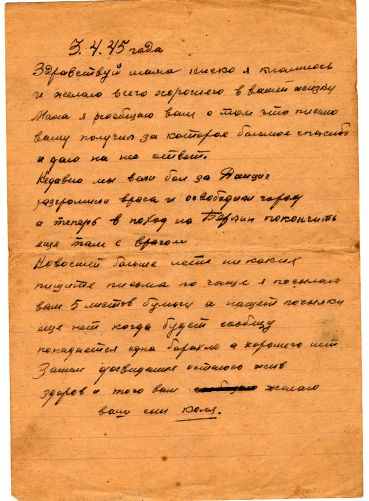 3.4.45 года
Здравствуй мама низко я кланяюсь
и желаю всего хорошего в вашей жизни
Мама я сообщаю вам о том что письмо
вашу получил за которое большое спасибо
и даю на не ответ.
Недавно мы вели бои за Данциг
разгромили врага и освободили город
а теперь в поход на Берлин покончить
еще там с врагом
Новостей больше нету никаких
пишите письма по чаще я посылаю
вам 5 листов бумаги а нащет посылки
еще нет когда будет сообщу
попадается одна барахло а хорошего нет
Затем досвидания остаюсь жив
здоров и того вам желаю
ваш сын Коля.